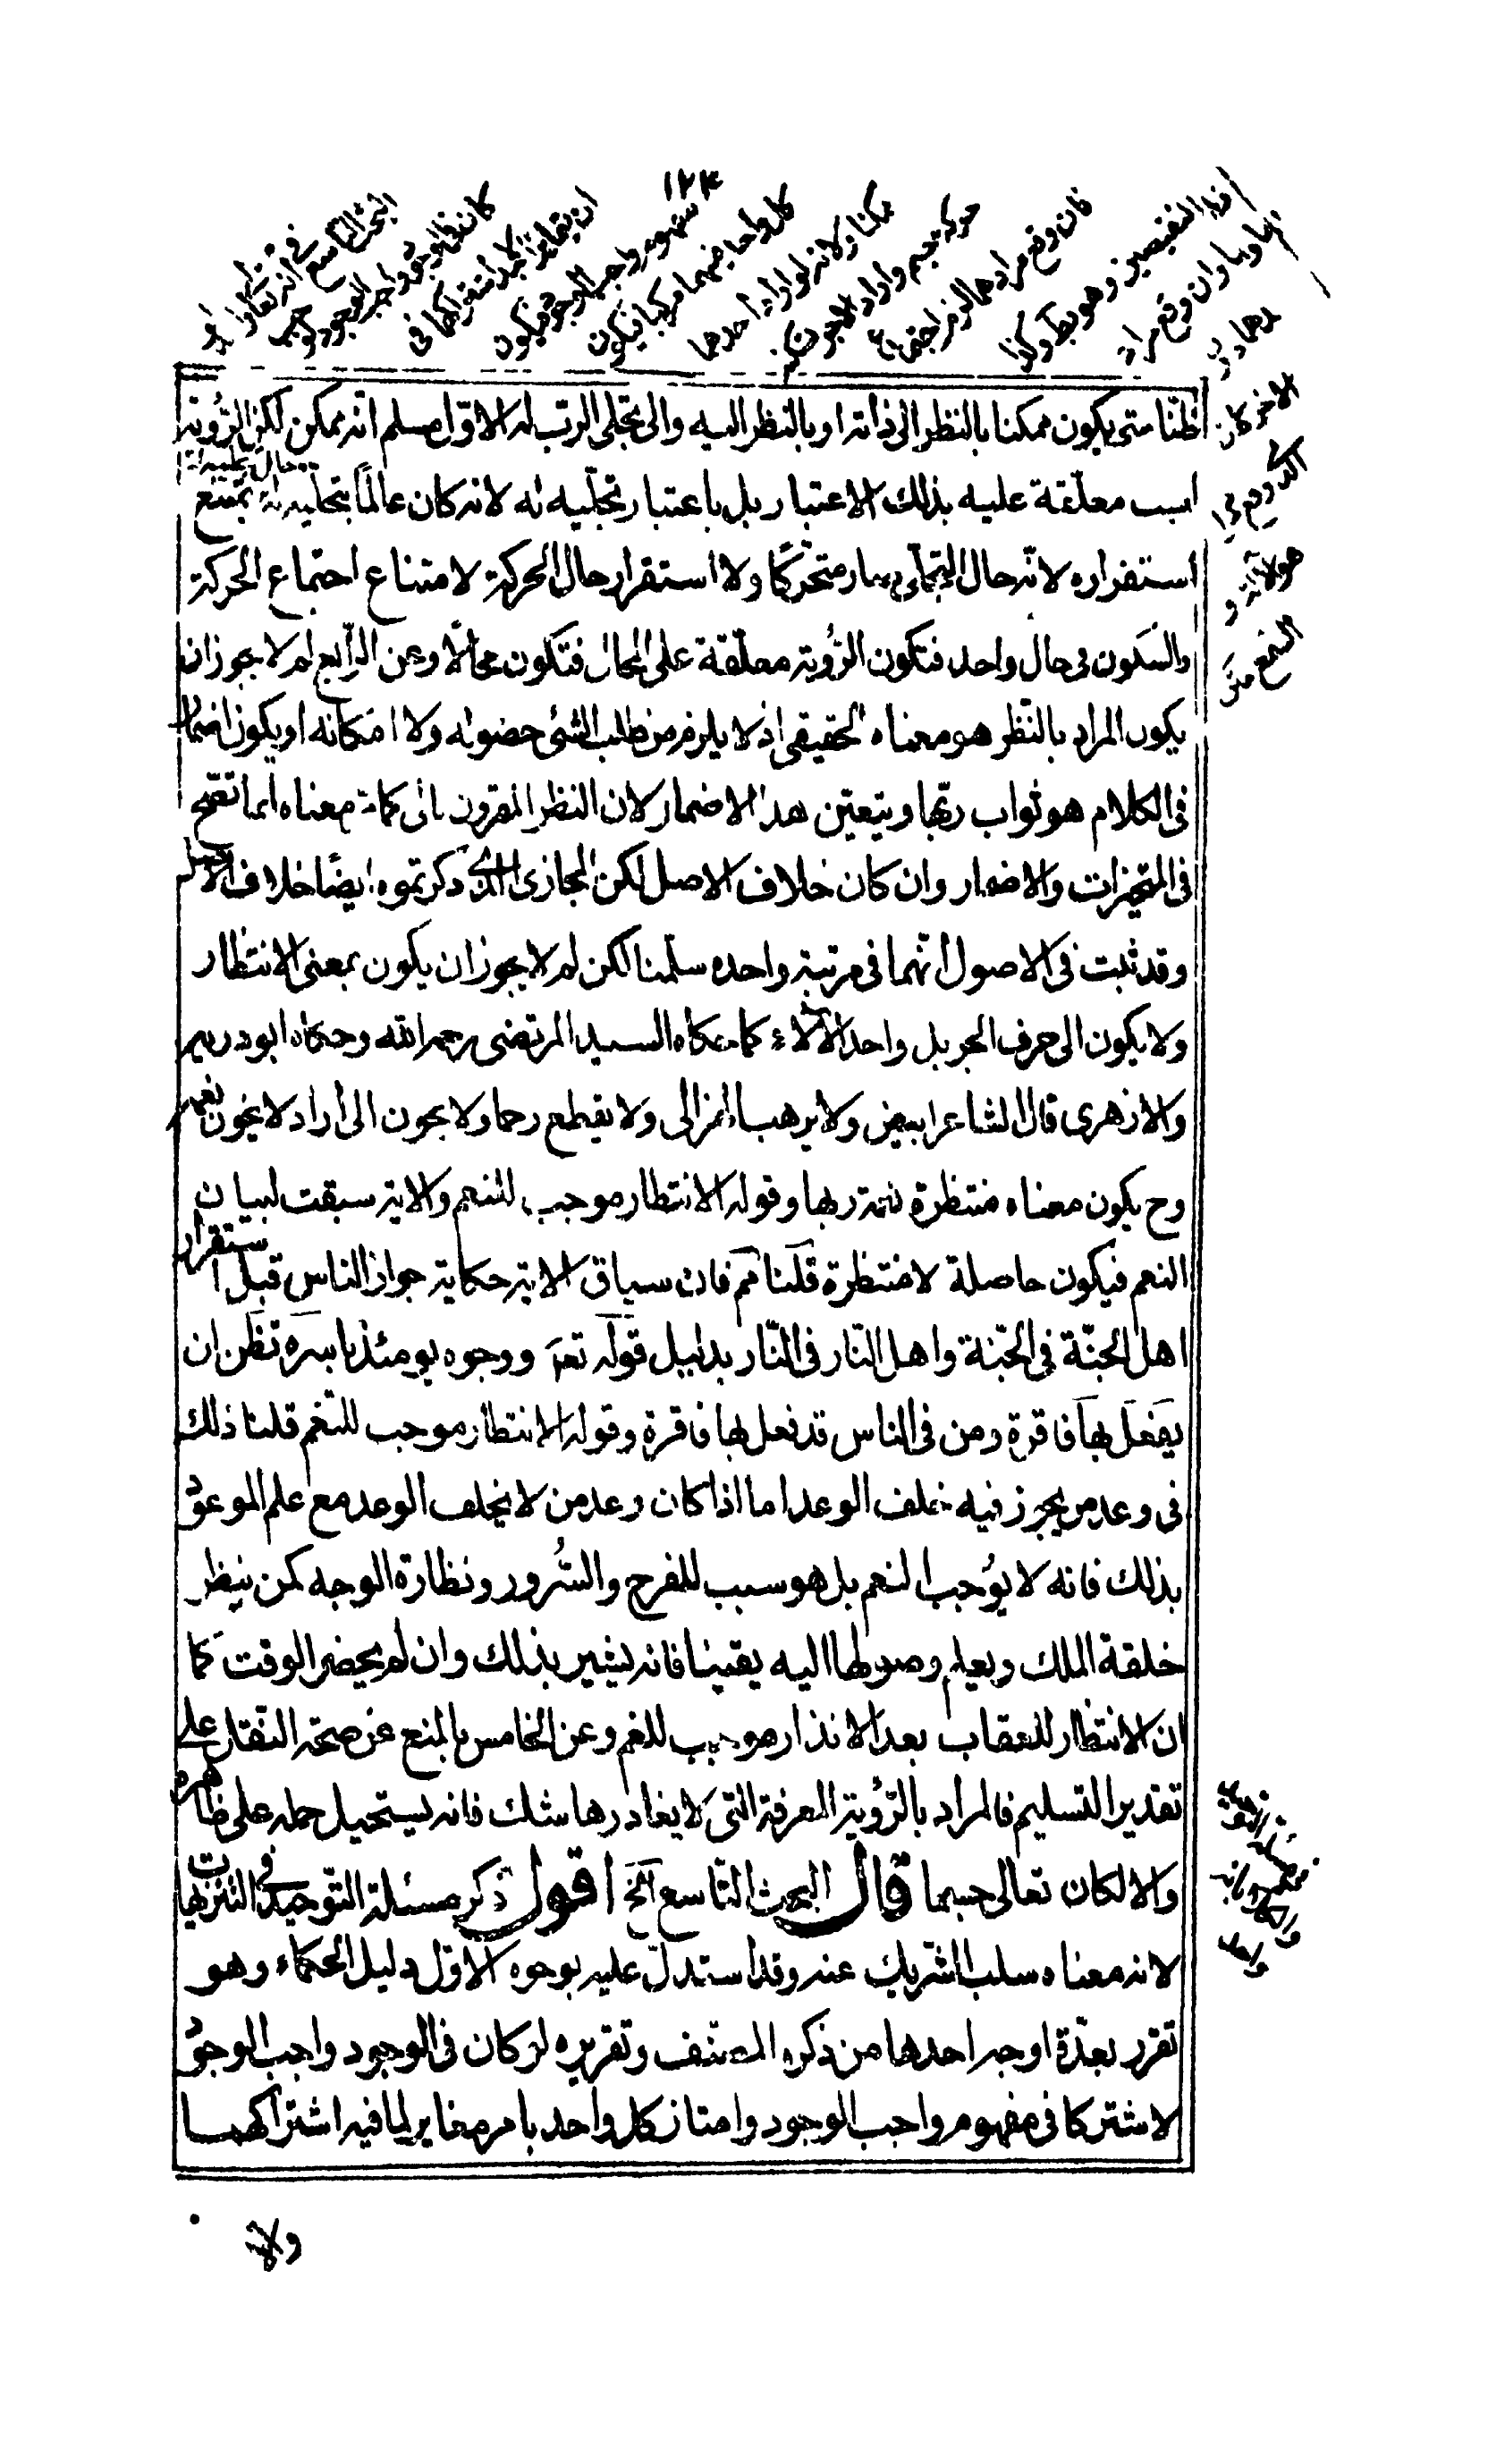 ١٢٣
البحث التاسع في انه تعالى واحد
لو كان في الوجود واجب الوجود
ان يتمايزا بعد اشتراكهما في
مفهوم واجب الوجود فيكون
كل واحد منهما مركبا فيكون
ممكنا ولانه لو اراد احدهما
حركة جسم واراد الاخر
فان وقع مرادهما لزم اجتماع
النقيضين وهو محال وكذا
وان وقع مراد
احدهما دون
الاخر كان
هو الاله و
للسمع
قلنا متى يكون ممكنا بالنظر الى ذاته او بالنظر اليه والى تجلى الرب له الاول مسلم انه ممكن لكن الرؤية
ليست معلقة عليه بذلك الاعتبار بل باعتبار تجليه له لانه كان عالمًا بتجليه له حال تجليه له يمتنع
استقراره لانه حال التجلى صار متحركًا ولا استقرار حال الحركة لامتناع اجتماع الحركة
والسكون فى حال واحد فتكون الرؤية معلقة على المحال فتكون محالًا وعن الرابع لم لا يجوز ان
يكون المراد بالنظر هو معناه الحقيقى اذ لا يلزم من طلب الشئ حضوله ولا امكانه او يكون اضمار
فى الكلام هو ثواب ربها ويتعين هذا الاضمار لان النظر المقرون بالى كان معناه انما تصح
فى المتحيزات والاضمار وان كان خلاف الاصل لكن المجازى الذى ذكرتموه ايضًا خلاف الاصل
وقد ثبت فى الاصول انهما فى مرتبة واحده سلمنا لكن لم لا يجوز ان يكون بمعنى الانتظار
ولا يكون الى حرف الجر بل واحد الآلاء كما حكاه السيد المرتضى رحمه الله وحكاه ابو دريد
والازهرى قال الشاعر ابيض ولا يرهب الهزال ولا يقطع رحما ولا يخون الى اراد لا يخون نعمه
وح يكون معناه منتظرة نعمة ربها وقوله الانتظار موجب للغم والاية سبقت لبيان
النعم فيكون حاصلة لا منتظرة قلنا نم فان سياق الاية حكاية جواز الناس قبل استقرار
اهل الجنة فى الجنة واهل النار فى النار بدليل قوله تعه ووجوه يومئذ باسرة تظن ان
يفعل بها فاقرة ومن فى الناس قد فعل بها فاقرة وقوله الانتظار موجب للغم قلنا ذلك
فى وعد من يجوز فيه خلف الوعد اما اذا كان وعد من لا يخلف الوعد مع علم الموعود
بذلك فانه لا يوجب الغم بل هو سبب للفرح والسرور ونظارة الوجه كمن ينظر
خلقة الملك ويعلم وصولها اليه يقينا فانه يشير بذلك وان لم يحضر الوقت كما
ان الانتظار للعقاب بعد الانذار موجب للغم وعن الخامس بالمنع عن صحة النقل على
تقدير التسليم فالمراد بالرؤية المعرفة التى لا يغادرها شك فانه يستحيل حمله على ظاهره
والا لكان تعالى جسما قال البحث التاسع الخ اقول ذكر مسئلة التوحيد فى التنزيهات
لانه معناه سلب الشريك عنه وقد استدل عليه بوجوه الاول دليل الحكماء وهو
تقرر بعدة اوجه احدها من ذكره المصنف وتقريره لو كان فى الوجود واجب الوجود
لاشتركا فى مفهوم واجب الوجود وامتاز كل واحد بامر مغاير لما فيه اشتراكهما
ولا